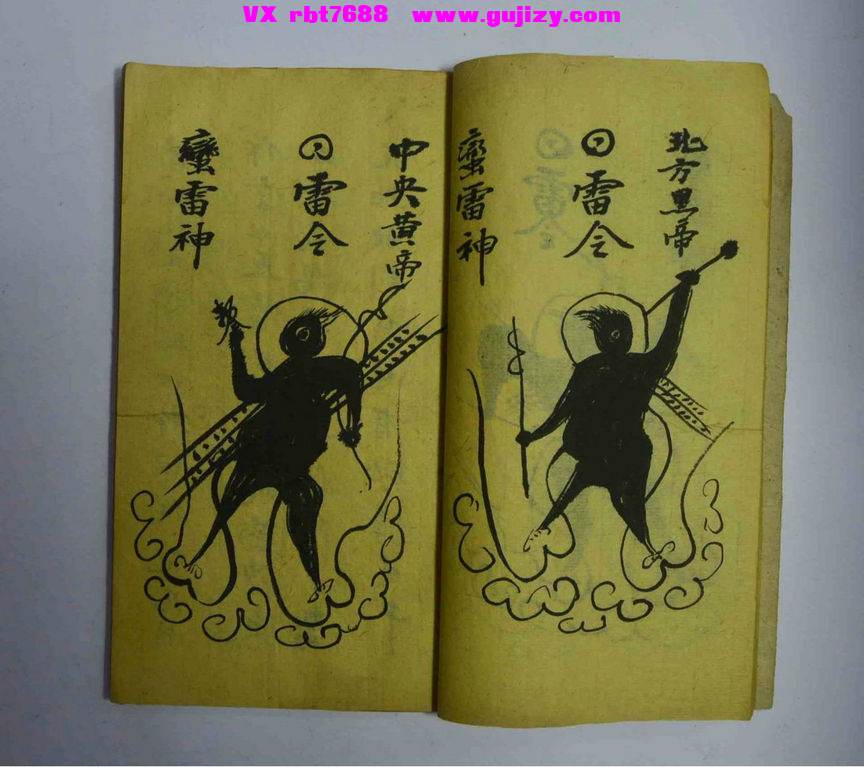 VX rbt7688 www.gujizy.com
北方黑帝
雷令
蛮雷神
中央黄帝
雷令
蠻雷神